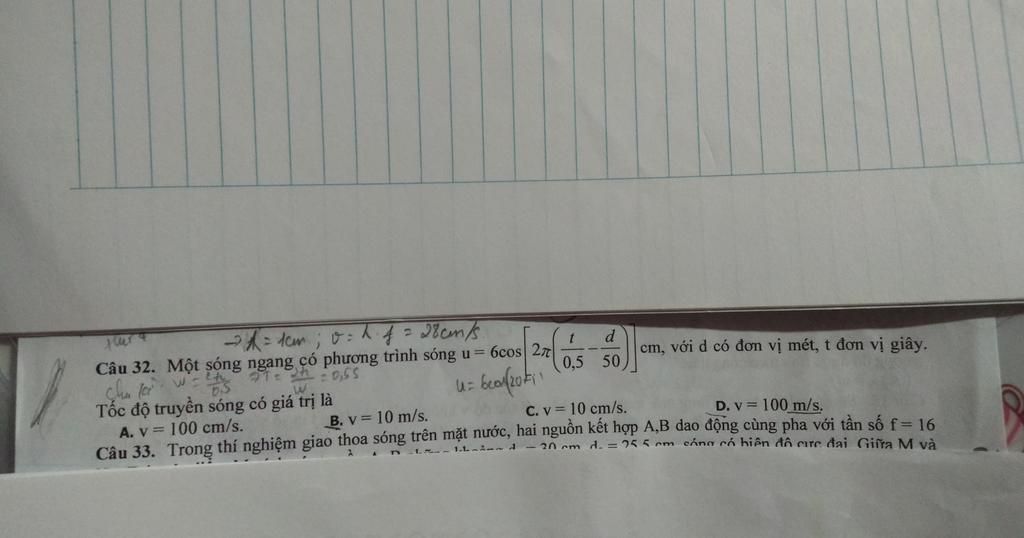 → λ = 1cm ; v = λ. f = 28cm/s
Câu 32. Một sóng ngang có phương trình sóng u = 6cos[2π(t/0,5 − d/50)] cm, với d có đơn vị mét, t đơn vị giây.
= 0,5s
Tốc độ truyền sóng có giá trị là
A. v = 100 cm/s. B. v = 10 m/s. C. v = 10 cm/s. D. v = 100 m/s.
Câu 33. Trong thí nghiệm giao thoa sóng trên mặt nước, hai nguồn kết hợp A,B dao động cùng pha với tần số f = 16
= 25,5 cm, sóng có biên độ cực đại. Giữa M và